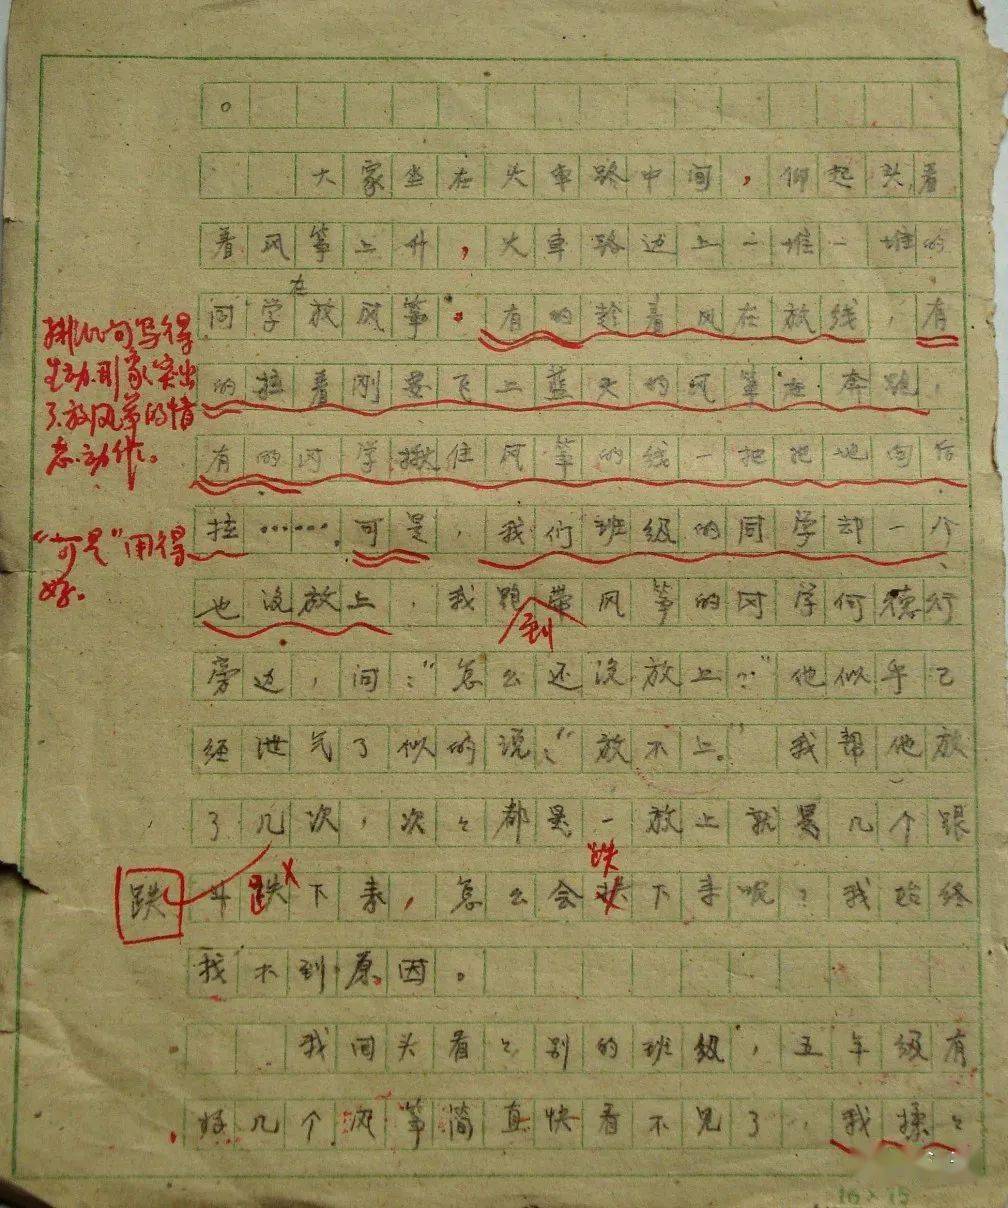 。
大家坐在火车路中间，仰起头看
着风筝上升，火车路边上一堆一堆的
同学在放风筝。有的趁着风在放线，有
的拉着刚要飞上蓝天的风筝在奔跑，
有的同学揪住风筝的线一把把地向后
拉……。可是，我们班级的同学却一个
也没放上，我跑带风筝的同学何德行
到
旁边，问：“怎么还没放上？”他似乎已
经泄气了似的说：“放不上。”我帮他放
了几次，次々都是一放上就是几个跟
斗跌下来，怎么会跌下来呢？我始终
找不到原因。
我回头看々别的班级，五年级有
好几个风筝简直快看不见了，我揉々
排比句写得
生动形象突出
了放风筝的情
态动作。
“可是”用得
好。
跌
16×15